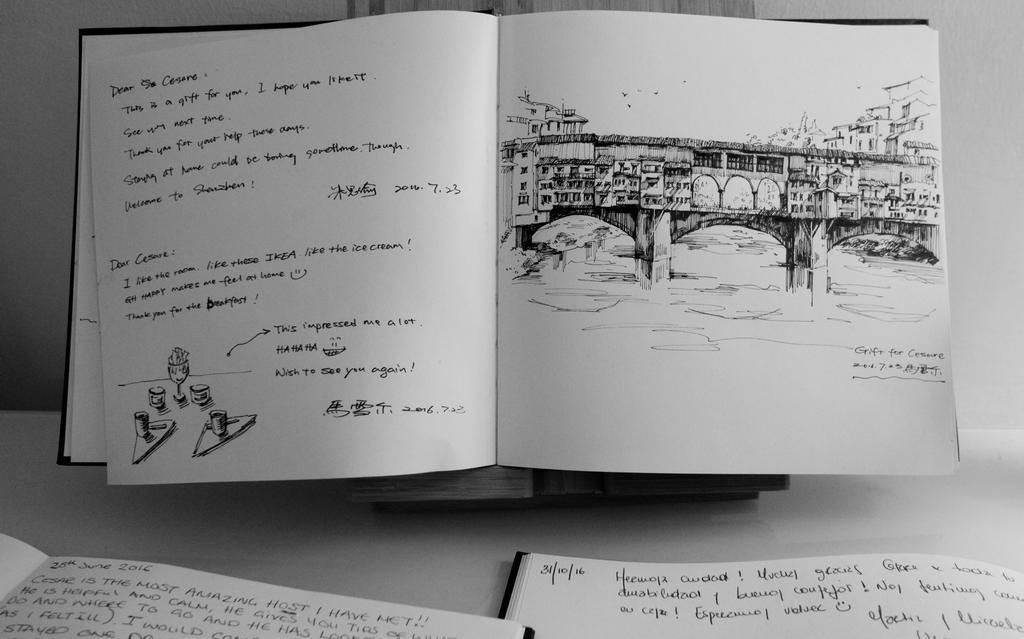 Dear Cesare:
This is a gift for you, I hope you like it.
See you next time.
Thank you for your help these days.
Staying at home could be boring sometime, though.
Welcome to Shenzhen!
2016.7.23
Dear Cesare:
I like the room. like these IKEA like the ice cream!
makes me feel at home
Thank you for the breakfast!
This impressed me a lot.
HAHAHA
Wish to see you again!
馬雪 2016.7.23
Grift for Cesare
2016.7.23 馬雪
25th June 2016
CESAR IS THE MOST AMAZING HOST I HAVE MET!!
HE IS HELPFUL AND CALM, HE GIVES YOU TIPS OF WHAT
DO AND WHERE TO GO AND HE HAS
AS I FELT ILL). I WOULD
STAYED ONE
31/10/16
Hermosa ciudad! Muchas gracias Cesare x toda tu
amabilidad y buenos consejos! Nos sentimos como
en casa! Esperamos volver